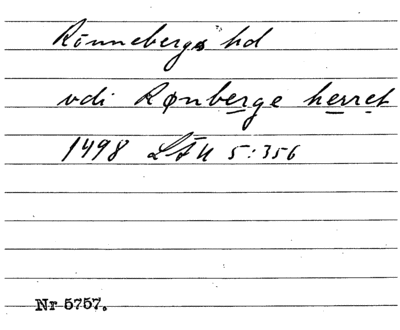 Rönnebergs hd
vdi Rønberge herret
1498 LÅU 5:356
Nr 5757.